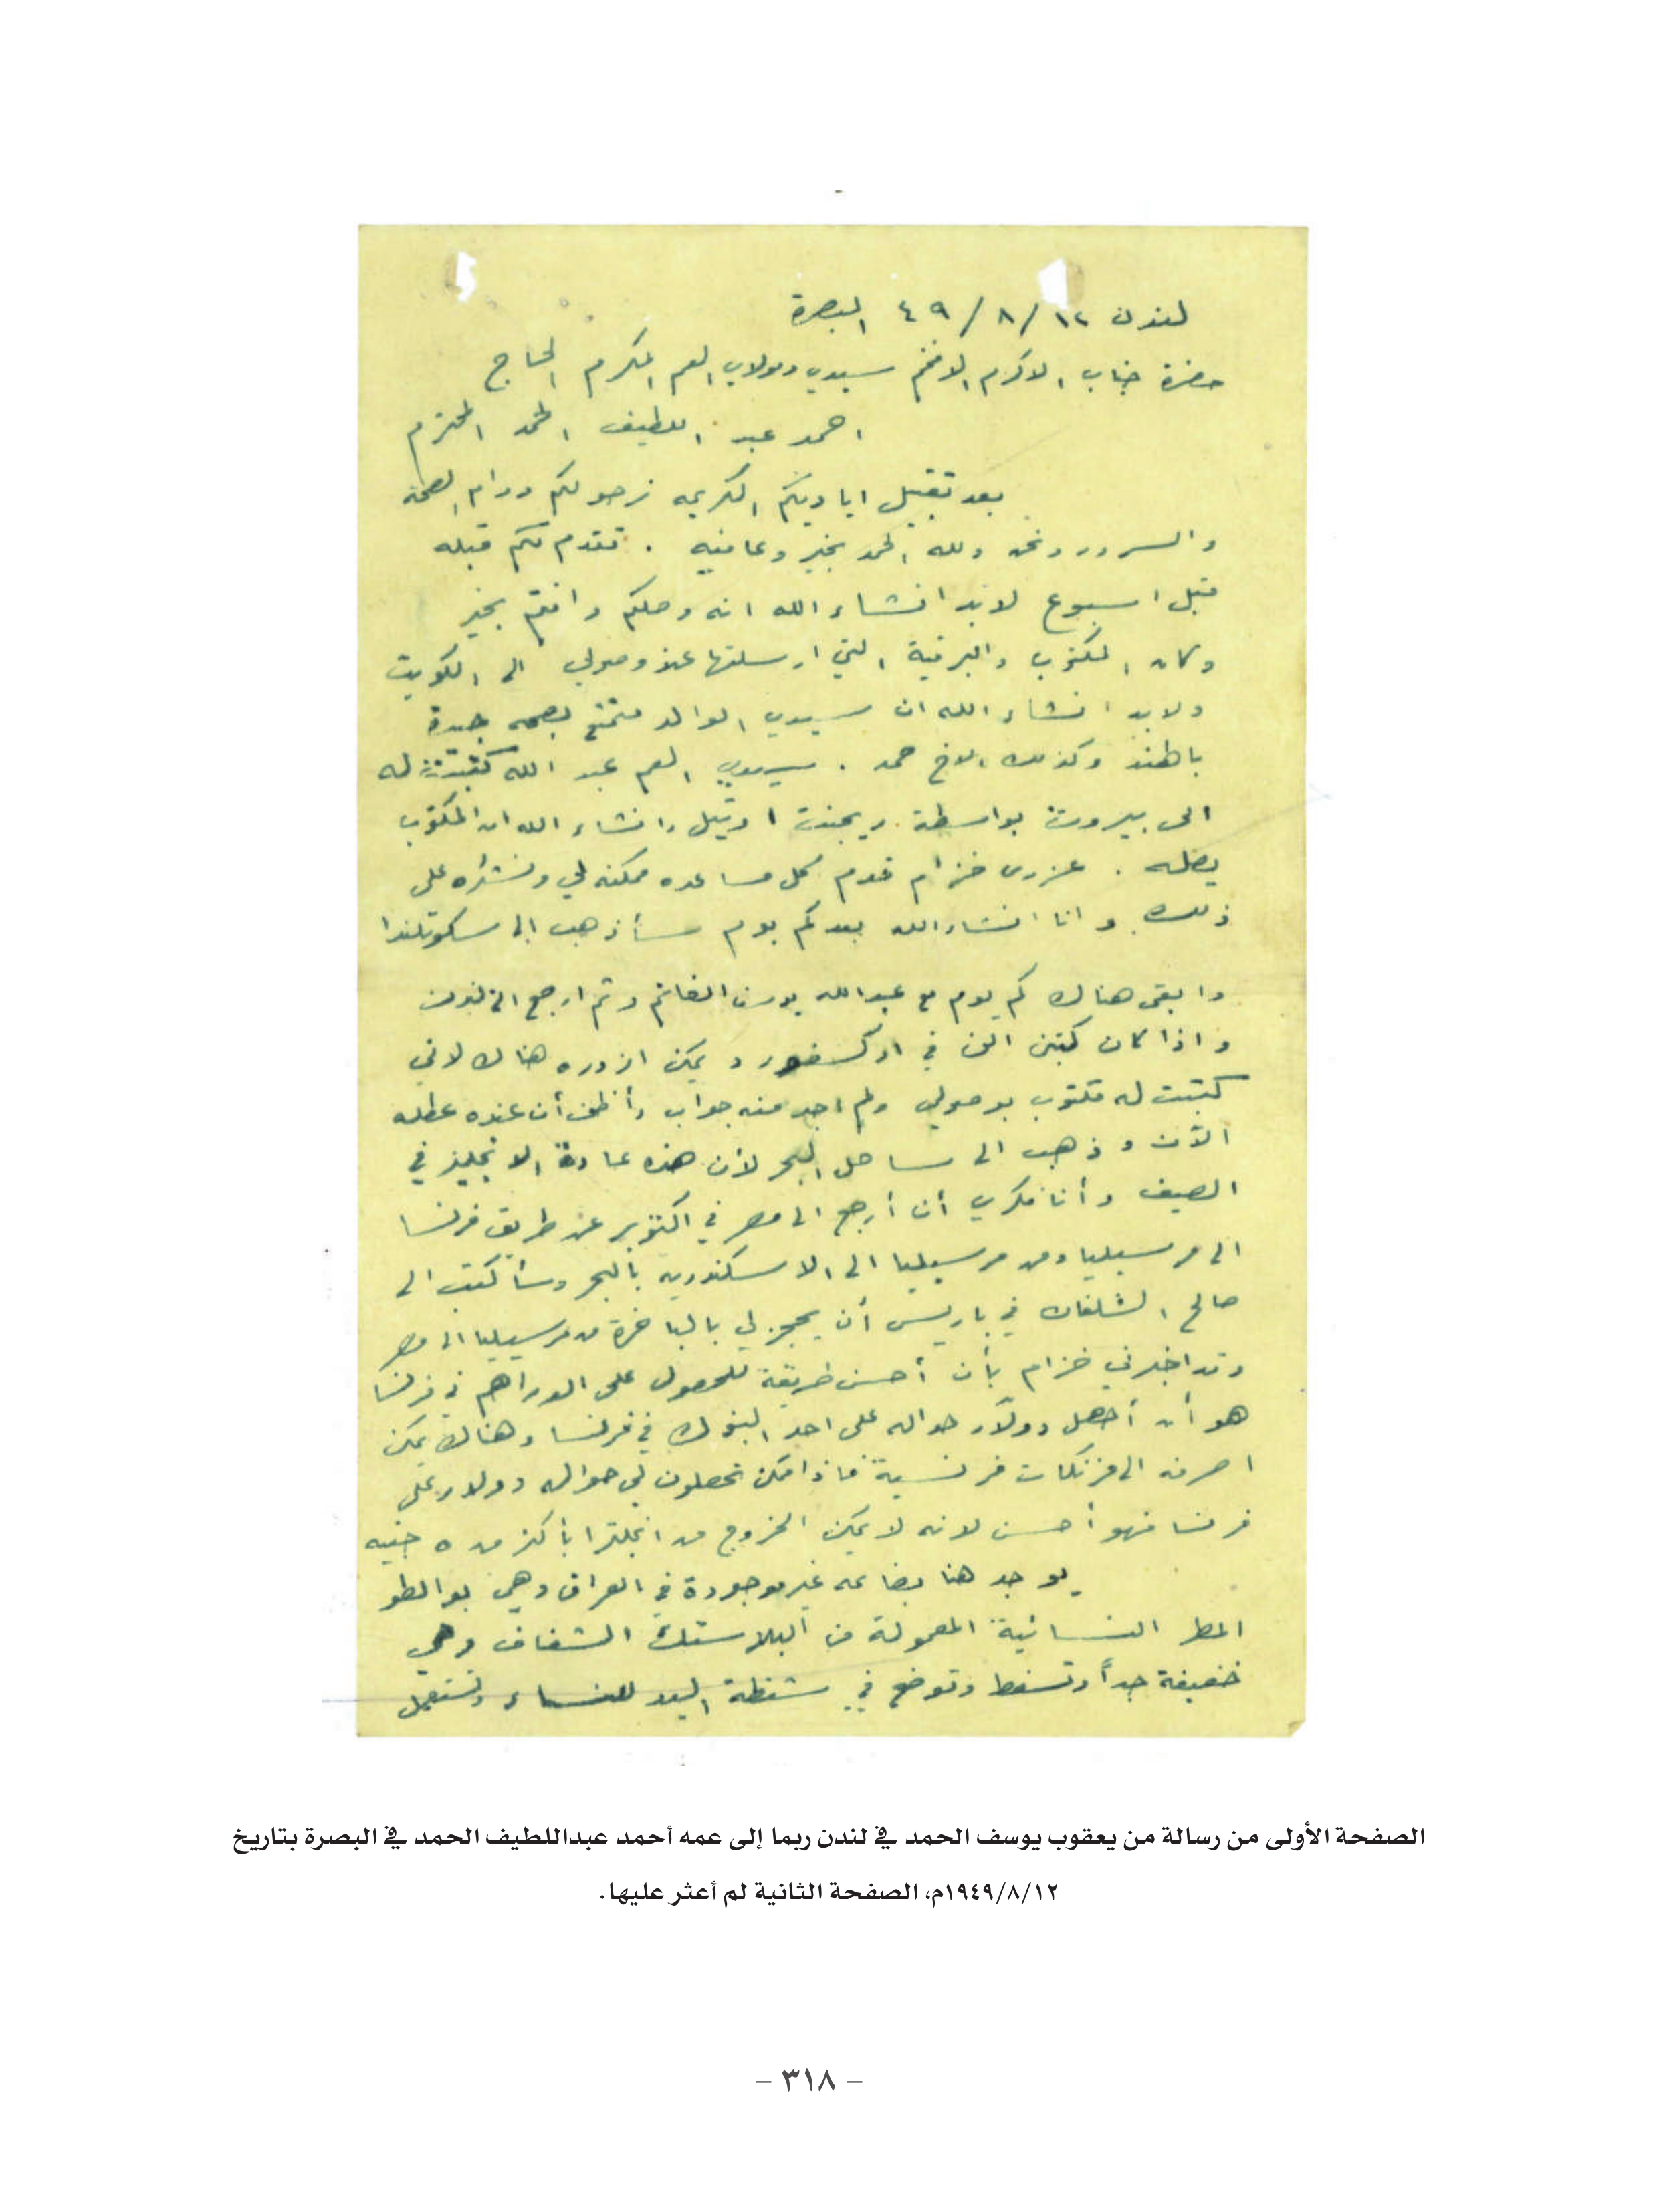 لندن ١٢/٨/٤٩ البصرة
حضرة جناب الاكرم الافخم سيدي ومولاي العم المكرم الحاج
احمد عبد اللطيف الحمد المحترم
بعد تقبيل اياديكم الكريمه نرجو لكم دوام الصحة
والسرور ونحن ولله الحمد بخير وعافيه . تقدم لكم قبله
قبل اسبوع لابد انشاء الله انه وصلكم وانتم بخير
وكان المكتوب والبرقية التي ارسلتها عند وصولي الى الكويت
ولابد انشاء الله ان سيدي الوالد متمتع بصحه جيدة
بالهند وكذلك الاخ حمد . سيدي العم عبد الله كتبت له
الى بيروت بواسطة ريجنت اوتيل وانشاء الله ان المكتوب
يصله . عزرى خزام قدم كل مساعده ممكنه لي ونشكره على
ذلك وانا انشاء الله بعد كم يوم سأذهب الى سكوتلندا
وابقى هناك كم يوم مع عبدالله يوسف الغانم وثم ارجع الى لندن
واذا كان كبتن الن في اوكسفورد يمكن ازوره هناك لاني
كتبت له مكتوب بوصولي ولم اجد منه جواب وأظن أن عنده عطله
الآن وذهب الى ساحل البحر لأن هذه عادة الانجليز في
الصيف وأنا فكري أن أرجع الى مصر في اكتوبر عن طريق فرنسا
الى مرسيليا ومن مرسيليا الى الاسكندريه بالبحر وسأكتب الى
صالح الشلفان في باريس أن يحجز لي بالباخرة من مرسيليا الى مصر
وقد اخبرني خزام بأن أحسن طريقة للحصول على الدراهم في فرنسا
هو أن أحصل دولار حواله على احد البنوك في فرنسا وهناك يمكن
اصرفه الى فرنكات فرنسية فاذا امكن تحصلون لي حواله دولار على
فرنسا فهو أحسن لانه لا يمكن الخروج من انجلترا بأكثر من ٥ جنيه
يوجد هنا بضاعه غير موجودة في العراق وهي بوالطو
المطر النسائية المعمولة من البلاستك الشفاف وهي
خفيفة جداً وتسفط وتوضع في شنطة اليد للنساء وتستعمل
الصفحة الأولى من رسالة من يعقوب يوسف الحمد في لندن ربما إلى عمه أحمد عبداللطيف الحمد في البصرة بتاريخ
١٩٤٩/٨/١٢م، الصفحة الثانية لم أعثر عليها.
- ٣١٨ -